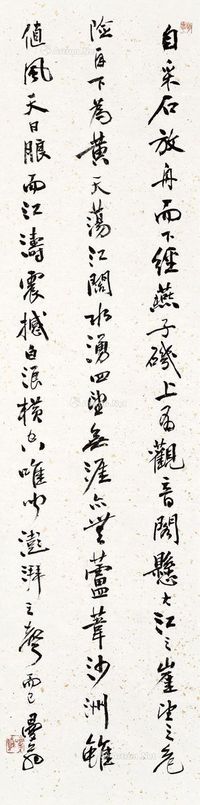 自采石放舟而下經燕子磯上有觀音閣懸大江之崖望之危
險再下為黃天蕩江闊水湧四望無涯亦無蘆葦沙洲雖
值風天日眼而江濤震撼白浪橫空唯聞澎湃之聲而已